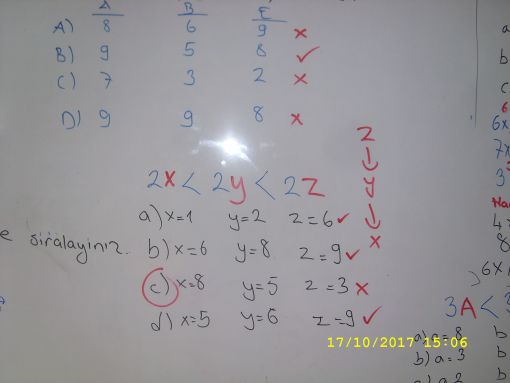 A B E
A) 8 6 9 x
B) 9 5 8 ✓
C) 7 3 2 x
D) 9 9 8 x
z
↓
y
↓
x
2x < 2y < 2z
a) x=1 y=2 z=6 ✓
e sıralayınız. b) x=6 y=8 z=9 ✓
c) x=8 y=5 z=3 x
d) x=5 y=6 z=9 ✓
a
b
c
6
6x
7x
3
4
8
6x
3A <
a) a=8 b
b) a=3 b
17/10/2017 15:06